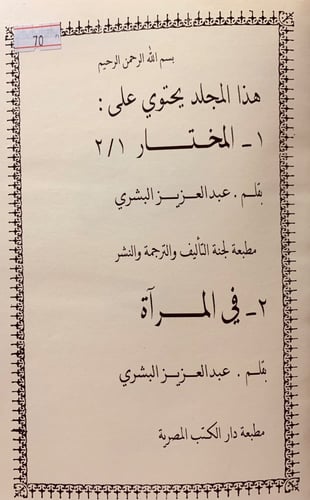 70
بسم الله الرحمن الرحيم
هذا المجلد يحتوي على :
١ - المختـــــار ٢/١
بقلـم . عبد العزيز البشري
مطبعة لجنة التأليف والترجمة والنشر
٢ - في المـــرآة
بقلـم . عبد العزيز البشري
مطبعة دار الكتب المصرية